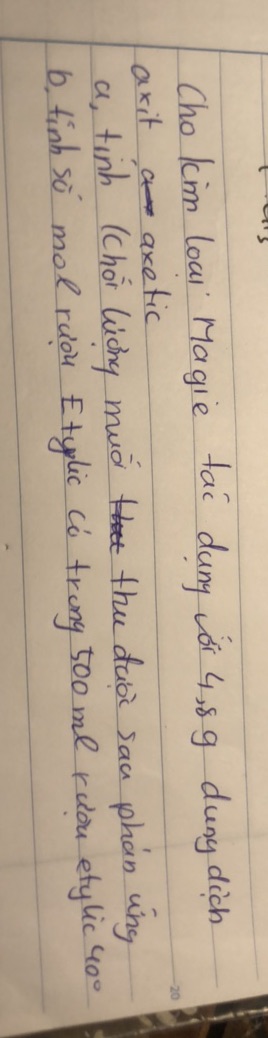 Cho kim loại Magie tác dụng với 4,8 g dung dịch
axit a axetic
a, tính (chối lượng muối thu thu được sau phản ứng
b, tính số mol rượu Etylic có trong 500 ml rượu etylic 40°
20